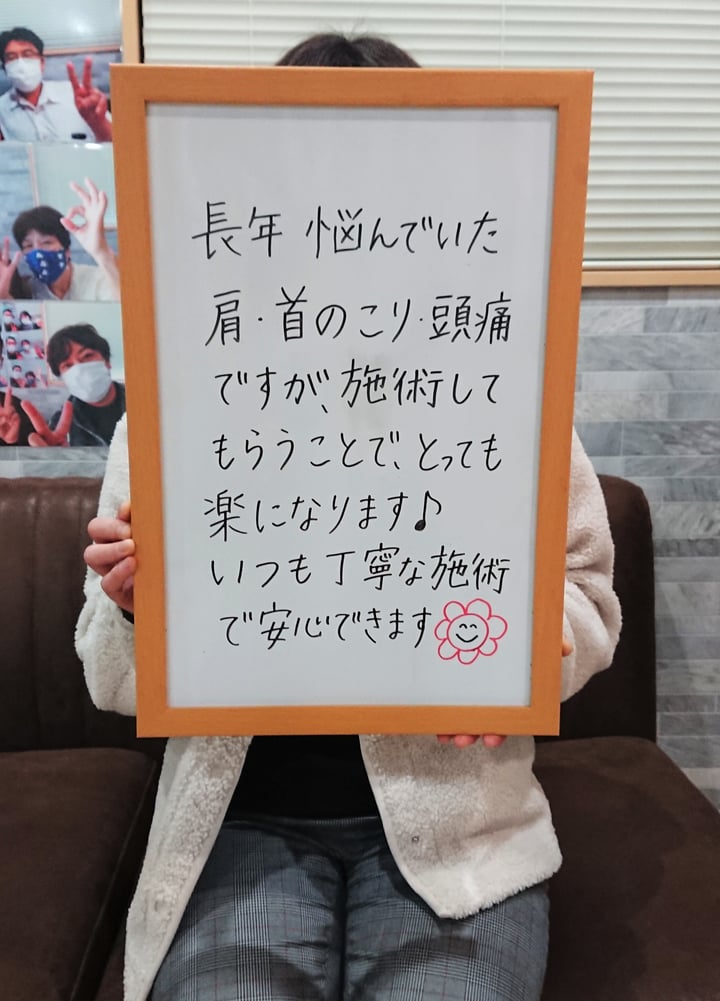 長年 悩んでいた
肩・首のこり・頭痛
ですが、施術して
もらうことで、とっても
楽になります♪
いつも丁寧な施術
で安心できます